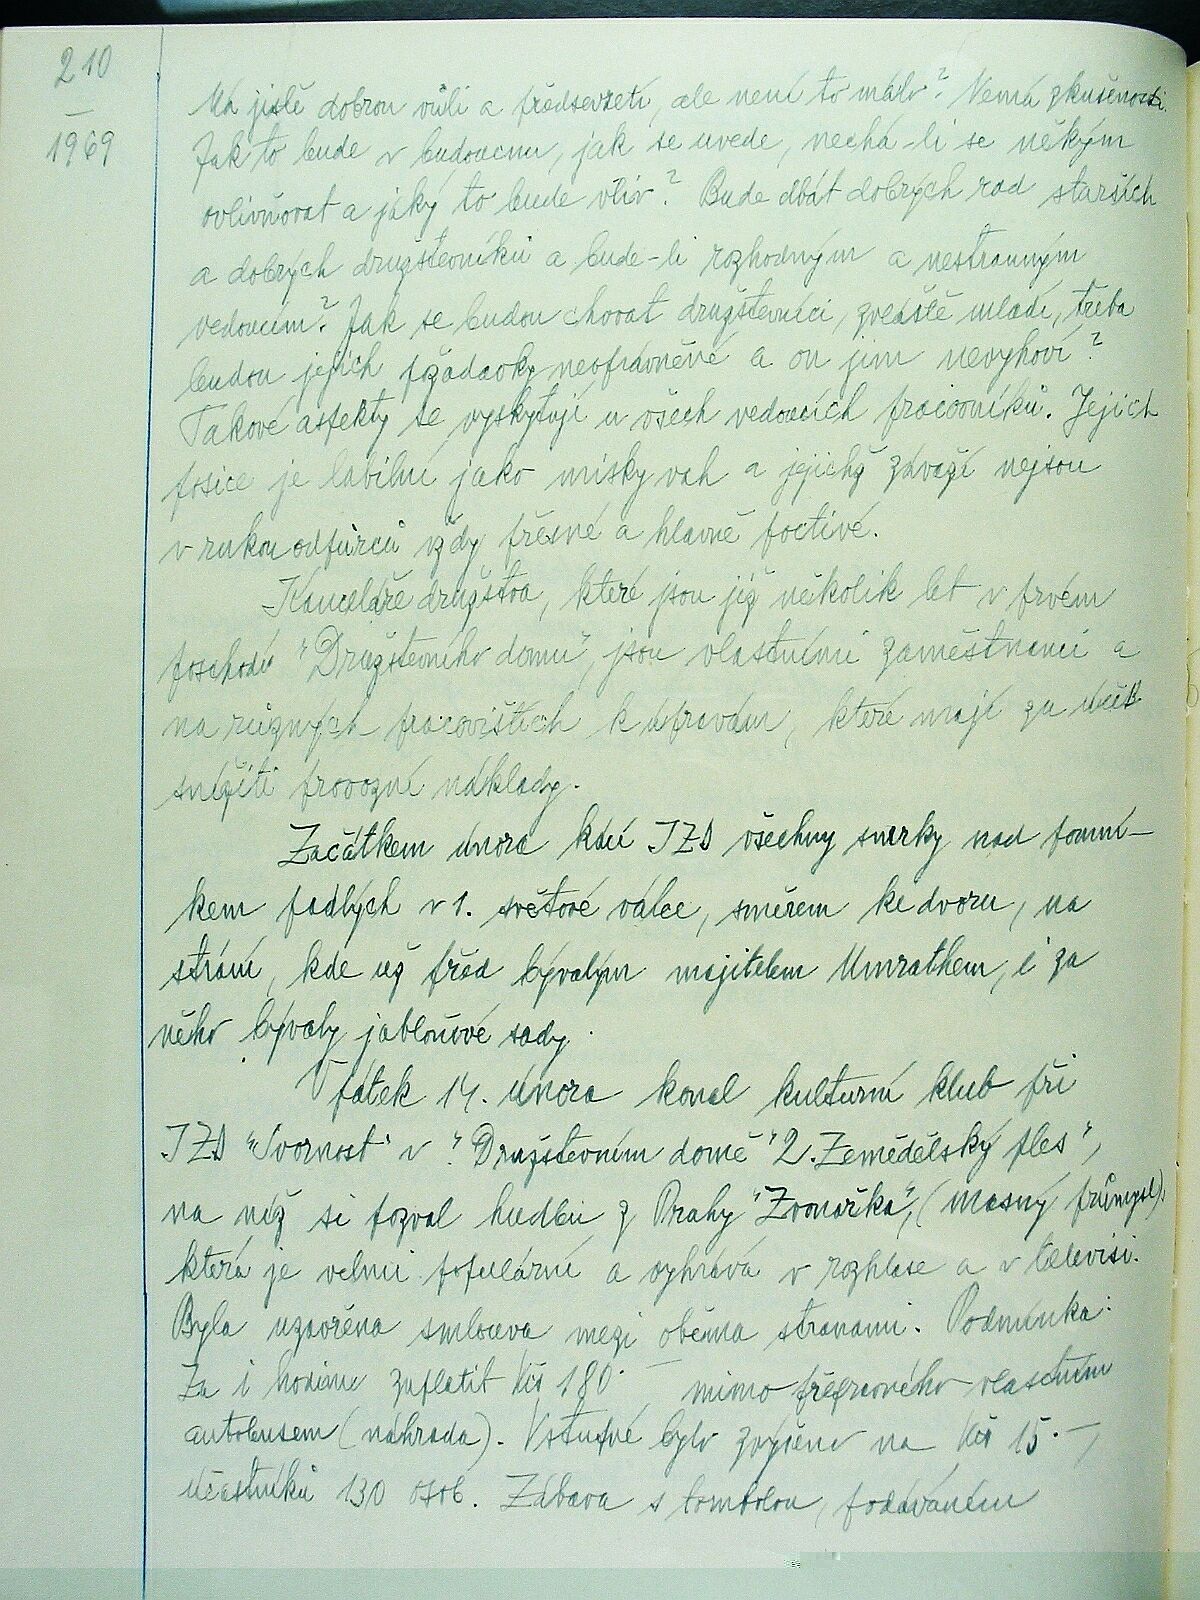 210
1969
Má jistě dobrou vůli a předsevzetí, ale není to málo? Nemá zkušenosti.
Jak to bude v budoucnu, jak se uvede, nechá-li se někým
ovlivňovat a jaký to bude vliv? Bude dbát dobrých rad starších
a dobrých družstevníků a bude-li rozhodným a nestranným
vedoucím? Jak se budou chovat družstevníci, zvláště mladí, třeba
budou jejich požadavky neoprávněné a on jim nevyhoví?
Takové aspekty se vyskytují u všech vedoucích pracovníků. Jejich
posice je labilní jako misky vah a jejichž závaží nejsou
v rukou odpůrců vždy přesné a hlavně poctivé.
Kanceláře družstva, které jsou již několik let v prvém
poschodí "Družstevního domu", jsou vlastními zaměstnanci a
na různých pracovištích k úpravám, které mají za účel
snížiti provozní náklady.
Začátkem února kácí JZD všechny smrky nad pomní-
kem padlých v 1. světové válce, směrem ke dvoru, na
stráni, kde už před bývalým majitelem Umrathem, i za
něho bývaly jabloňové sady.
V pátek 14. února konal kulturní klub při
JZD "Svornost" v "Družstevním domě "2. Zemědělský ples",
na nějž si pozval hudbu z Prahy "Zvonařka", (masný průmysl).
která je velmi populární a vyhrává v rozhlase a v televisi.
Byla uzavřena smlouva mezi oběma stranami. Podmínka:
Za 1 hodinu zaplatit Kčs 180.— mimo přepravného vlastním
autobusem (náhrada). Vstupné bylo zvýšeno na Kčs 15.—,
účastníků 130 osob. Zábava s tombolou, podáváním